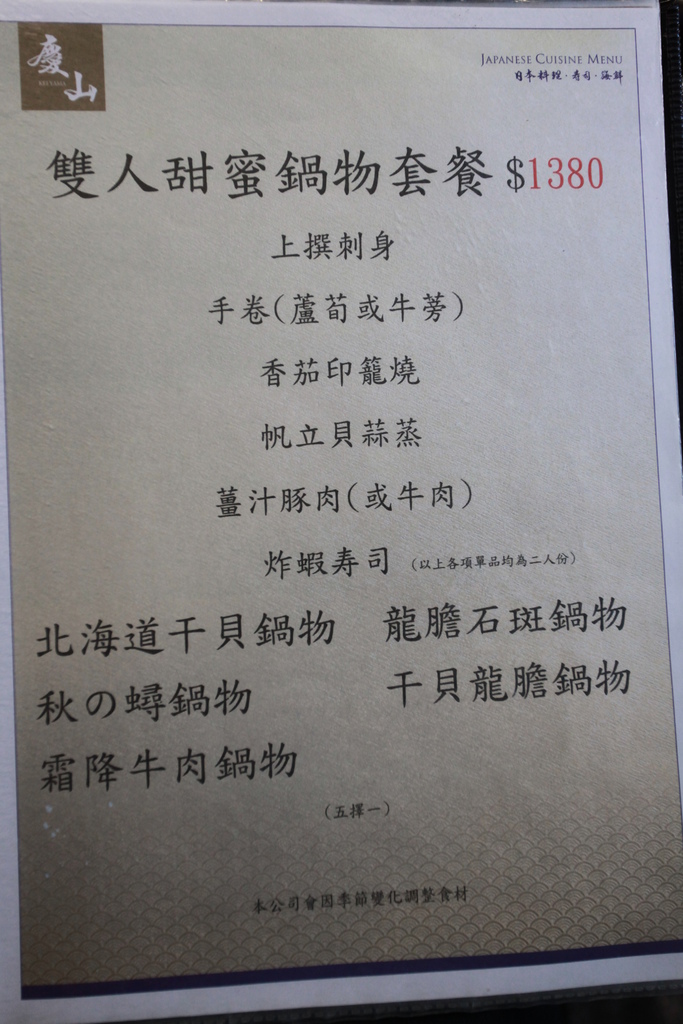 慶山
JAPANESE CUISINE MENU
日本料理·寿司·海鮮
雙人甜蜜鍋物套餐 $1380
上撰刺身
手卷(蘆荀或牛蒡)
香茄印籠燒
帆立貝蒜蒸
薑汁豚肉(或牛肉)
炸蝦寿司 (以上各項單品均為二人份)
北海道干貝鍋物 龍膽石斑鍋物
秋の蟳鍋物 干貝龍膽鍋物
霜降牛肉鍋物
(五擇一)
本公司會因季節變化調整食材